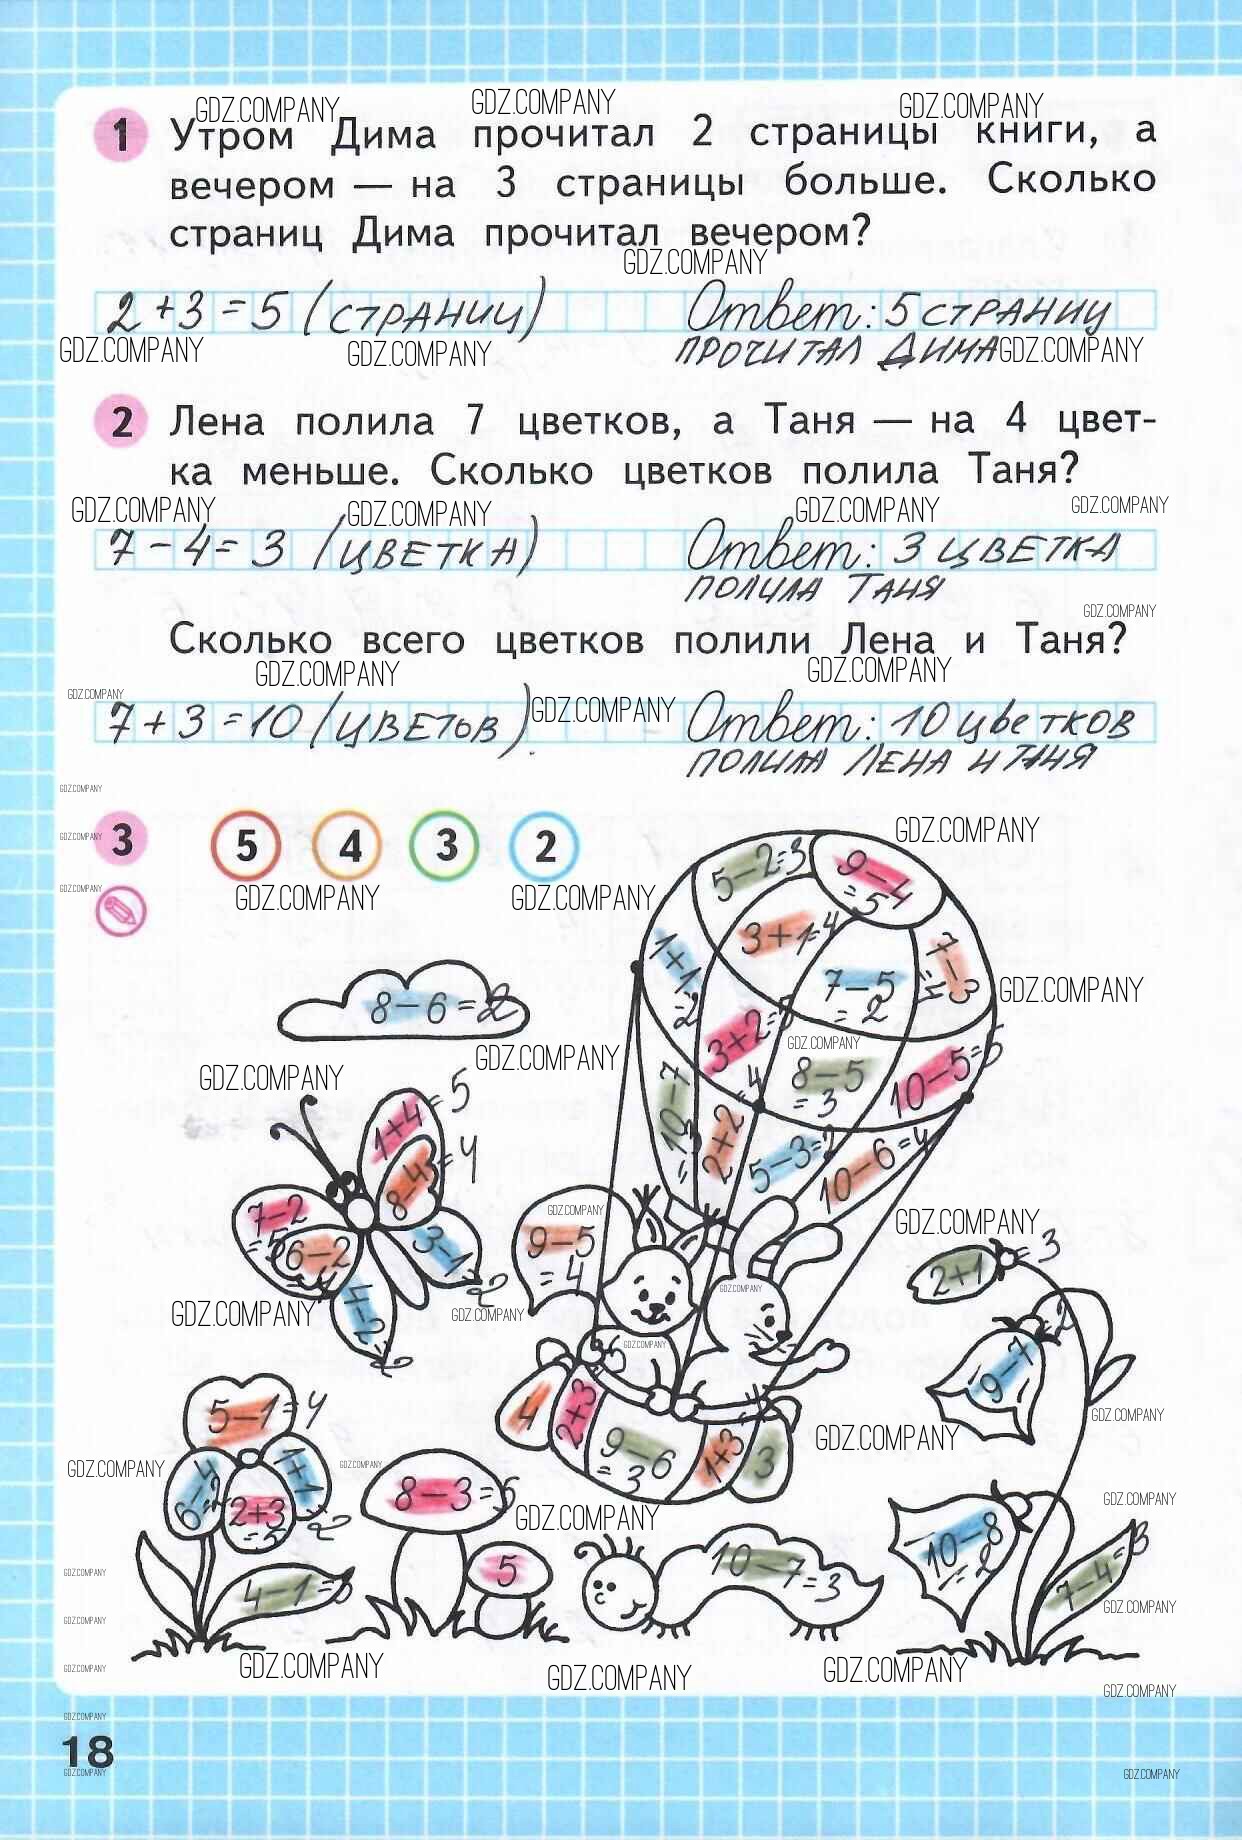 GDZ.COMPANY GDZ.COMPANY GDZ.COMPANY
1 Утром Дима прочитал 2 страницы книги, а
вечером — на 3 страницы больше. Сколько
страниц Дима прочитал вечером?
GDZ.COMPANY
2+3=5 (СТРАНИЦ) Ответ: 5 СТРАНИЦ
ПРОЧИТАЛ ДИМА
GDZ.COMPANY GDZ.COMPANY GDZ.COMPANY
2 Лена полила 7 цветков, а Таня — на 4 цвет-
ка меньше. Сколько цветков полила Таня?
GDZ.COMPANY GDZ.COMPANY GDZ.COMPANY GDZ.COMPANY
7-4=3 (ЦВЕТКА) Ответ: 3 ЦВЕТКА
ПОЛИЛА ТАНЯ
GDZ.COMPANY
Сколько всего цветков полили Лена и Таня?
GDZ.COMPANY GDZ.COMPANY
GDZ.COMPANY GDZ.COMPANY
7+3=10 (ЦВЕТЬВ). Ответ: 10 цветков
ПОЛИЛА ЛЕНА И ТАНЯ
GDZ.COMPANY
3 5 4 3 2
GDZ.COMPANY GDZ.COMPANY
GDZ.COMPANY GDZ.COMPANY GDZ.COMPANY
5-2=3
9-4
=5
3+1=4
1+1
=2
7-5
=2
7-3
=4
GDZ.COMPANY
8-6=2
3+2=5
GDZ.COMPANY
8-5
=3
10-5=5
GDZ.COMPANY GDZ.COMPANY
10-7
=3
2+2=4
5-3=2
10-6=4
1+4=5
8-4=4
7-2
=5
6-2
=4
3-1=2
4-2
=2
GDZ.COMPANY
9-5
=4
GDZ.COMPANY
2+1=3
GDZ.COMPANY GDZ.COMPANY GDZ.COMPANY
GDZ.COMPANY
9-7=2
4
2+3
=5
9-6
=3
1+3
3
GDZ.COMPANY
GDZ.COMPANY
5-1=4
GDZ.COMPANY GDZ.COMPANY
6-4
=2
1+1
=2
2+3
=5
8-3=5
GDZ.COMPANY
GDZ.COMPANY
10-8
=2
5
10-7=3
4-1=3
7-4=3
GDZ.COMPANY
GDZ.COMPANY
GDZ.COMPANY
GDZ.COMPANY GDZ.COMPANY GDZ.COMPANY GDZ.COMPANY
GDZ.COMPANY
GDZ.COMPANY
18
GDZ.COMPANY GDZ.COMPANY